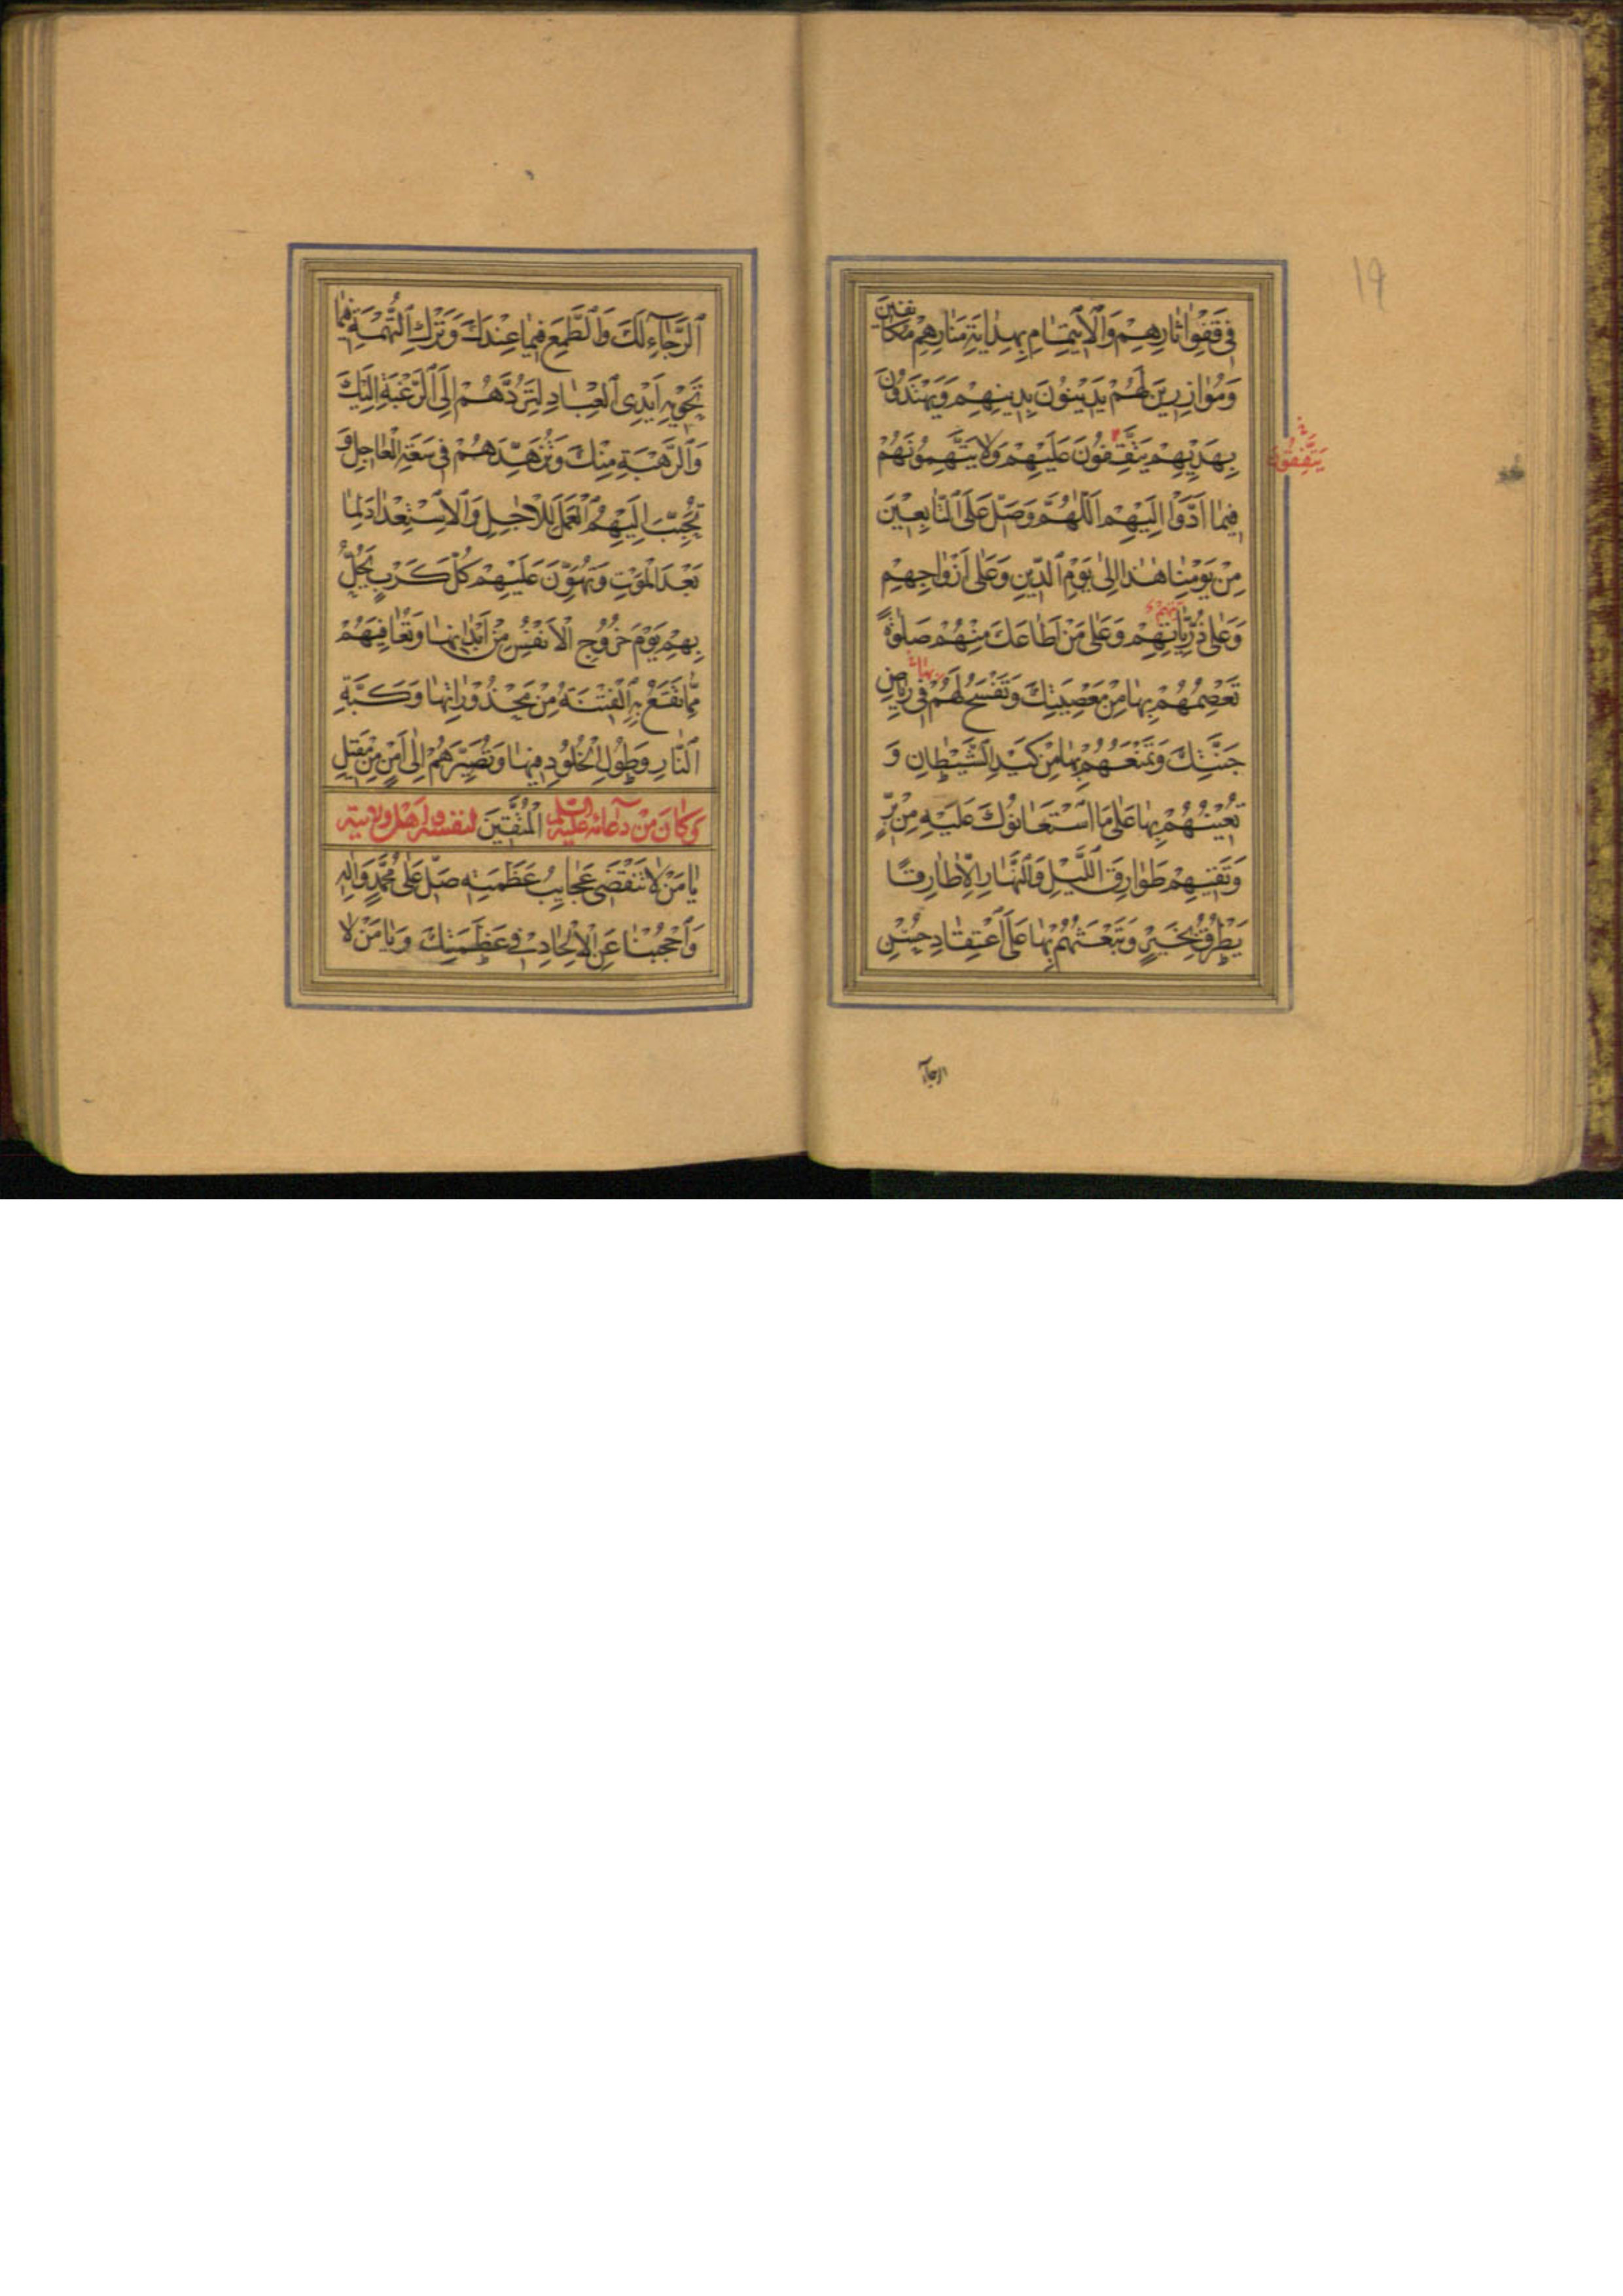 ١٩
فِي قَفْوِ اٰثارِهِمْ وَالْاِيتِمٰامِ بِهِدٰايَةِ مَنٰارِهِمْ مُكٰانِفينَ
وَمُوٰازِرينَ لَهُمْ يَدينُونَ بِدينِهِمْ وَيَهْتَدُونَ
بِهَدْيِهِمْ يَتَّفِقُونَ عَلَيْهِمْ وَلا يَتَّهِمُونَهُمْ
يَتَّفِقُونَ
فيمٰا اَدَّوْا اِلَيْهِمْ اَللّٰهُمَّ وَصَلِّ عَلَى التّٰابِعينَ
مِنْ يَوْمِنٰا هٰذٰا اِلىٰ يَوْمِ الدّينِ وَعَلىٰ اَزْوٰاجِهِمْ
وَعَلىٰ ذُرِّيّٰاتِهِمْ وَعَلىٰ مَنْ اَطٰاعَكَ مِنْهُمْ صَلوٰةً
تَعْصِمُهُمْ بِهٰا مِنْ مَعْصِيَتِكَ وَتَفْسَحُ لَهُمْ فى رِيٰاضِ
جَنَّتِكَ وَتَمْنَعُهُمْ بِهٰا مِنْ كَيْدِ الشَّيْطٰانِ وَ
تُعينُهُمْ بِهٰا عَلىٰ مَا اسْتَعٰانُوكَ عَلَيْهِ مِنْ بِرٍّ
وَتَقيهِمْ طَوٰارِقَ اللَّيْلِ وَالنَّهٰارِ اِلّٰا طٰارِقًا
يَطْرُقُ بِخَيْرٍ وَتَبْعَثُهُمْ بِهٰا عَلَى اعْتِقٰادِ حُسْنِ
الرجآء
اَلرَّجٰآءِ لَكَ وَالطَّمَعِ فيمٰا عِنْدَكَ وَتَرْكِ التُّهْمَةِ فيمٰا
تَحْويهِ اَيْدِى الْعِبٰادِ لِتَرُدَّهُمْ اِلَى الرَّغْبَةِ اِلَيْكَ
وَالرَّهْبَةِ مِنْكَ وَتُزَهِّدَهُمْ فى سَعَةِ الْعٰاجِلِ وَ
تُحَبِّبَ اِلَيْهِمُ الْعَمَلَ لِلْاٰجِلِ وَالْاِسْتِعْدٰادَ لِمٰا
بَعْدَ الْمَوْتِ وَتُهَوِّنَ عَلَيْهِمْ كُلَّ كَرْبٍ يَحُلُّ
بِهِمْ يَوْمَ خُرُوجِ الْاَنْفُسِ مِنْ اَبْدٰانِهٰا وَتُعٰافِيَهُمْ
مِمّٰا تَقَعُ بِهِ الْفِتْنَةُ مِنْ مَحْذُورٰاتِهٰا وَكَبَّةِ
النّٰارِ وَطُولِ الْخُلُودِ فيهٰا وَتُصَيِّرَهُمْ اِلىٰ اَمْنٍ مِنْ مَقيلِ
وَكٰانَ مِنْ دُعٰائِهِ عَلَيْهِ السَّلٰمُ الْمُتَّقينَ لِنَفْسِهِ وَلِاَهْلِ وِلايَتِهِ
يٰا مَنْ لا تَنْقَضى عَجٰايِبُ عَظَمَتِهِ صَلِّ عَلىٰ مُحَمَّدٍ وَاٰلِهِ
وَاحْجُبْنٰا عَنِ الْاِلْحٰادِ فى عَظَمَتِكَ وَيٰا مَنْ لا